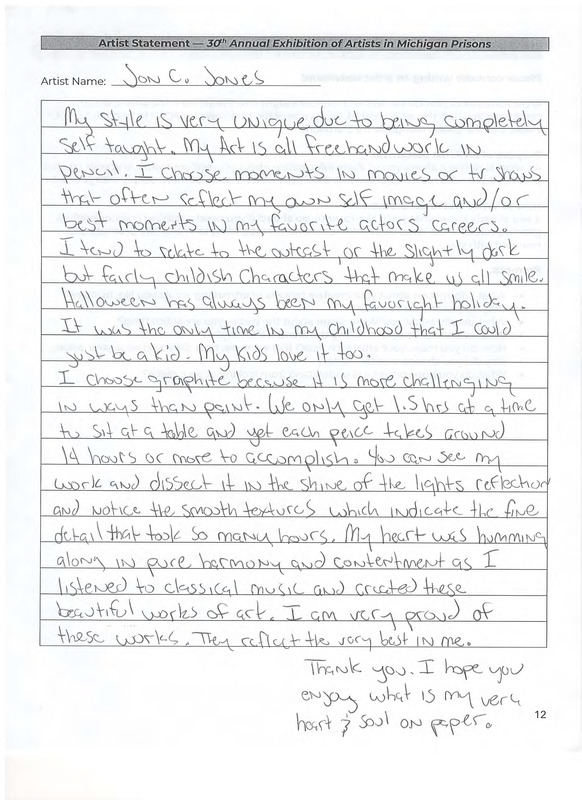 Artist Statement — 30th Annual Exhibition of Artists in Michigan Prisons
Artist Name: Jon C. Jones
My style is very unique due to being completely
self taught. My Art is all freehand work in
pencil. I choose moments in movies or tv shows
that often reflect my own self image and/or
best moments in my favorite actors careers.
I tend to relate to the outcast, or the slightly dark
but fairly childish characters that make us all smile.
Halloween has always been my favoright holiday.
It was the only time in my childhood that I could
just be a kid. My kids love it too.
I choose graphite because it is more challenging
in ways than paint. We only get 1.5 hrs at a time
to sit at a table and yet each peice takes around
14 hours or more to accomplish. You can see my
work and dissect it in the shine of the lights reflection
and notice the smooth textures which indicate the fine
detail that took so many hours. My heart was humming
along in pure harmony and contentment as I
listened to classical music and created these
beautiful works of art. I am very proud of
these works. They reflect the very best in me.
Thank you. I hope you
enjoy what is my very
heart & soul on paper.
12